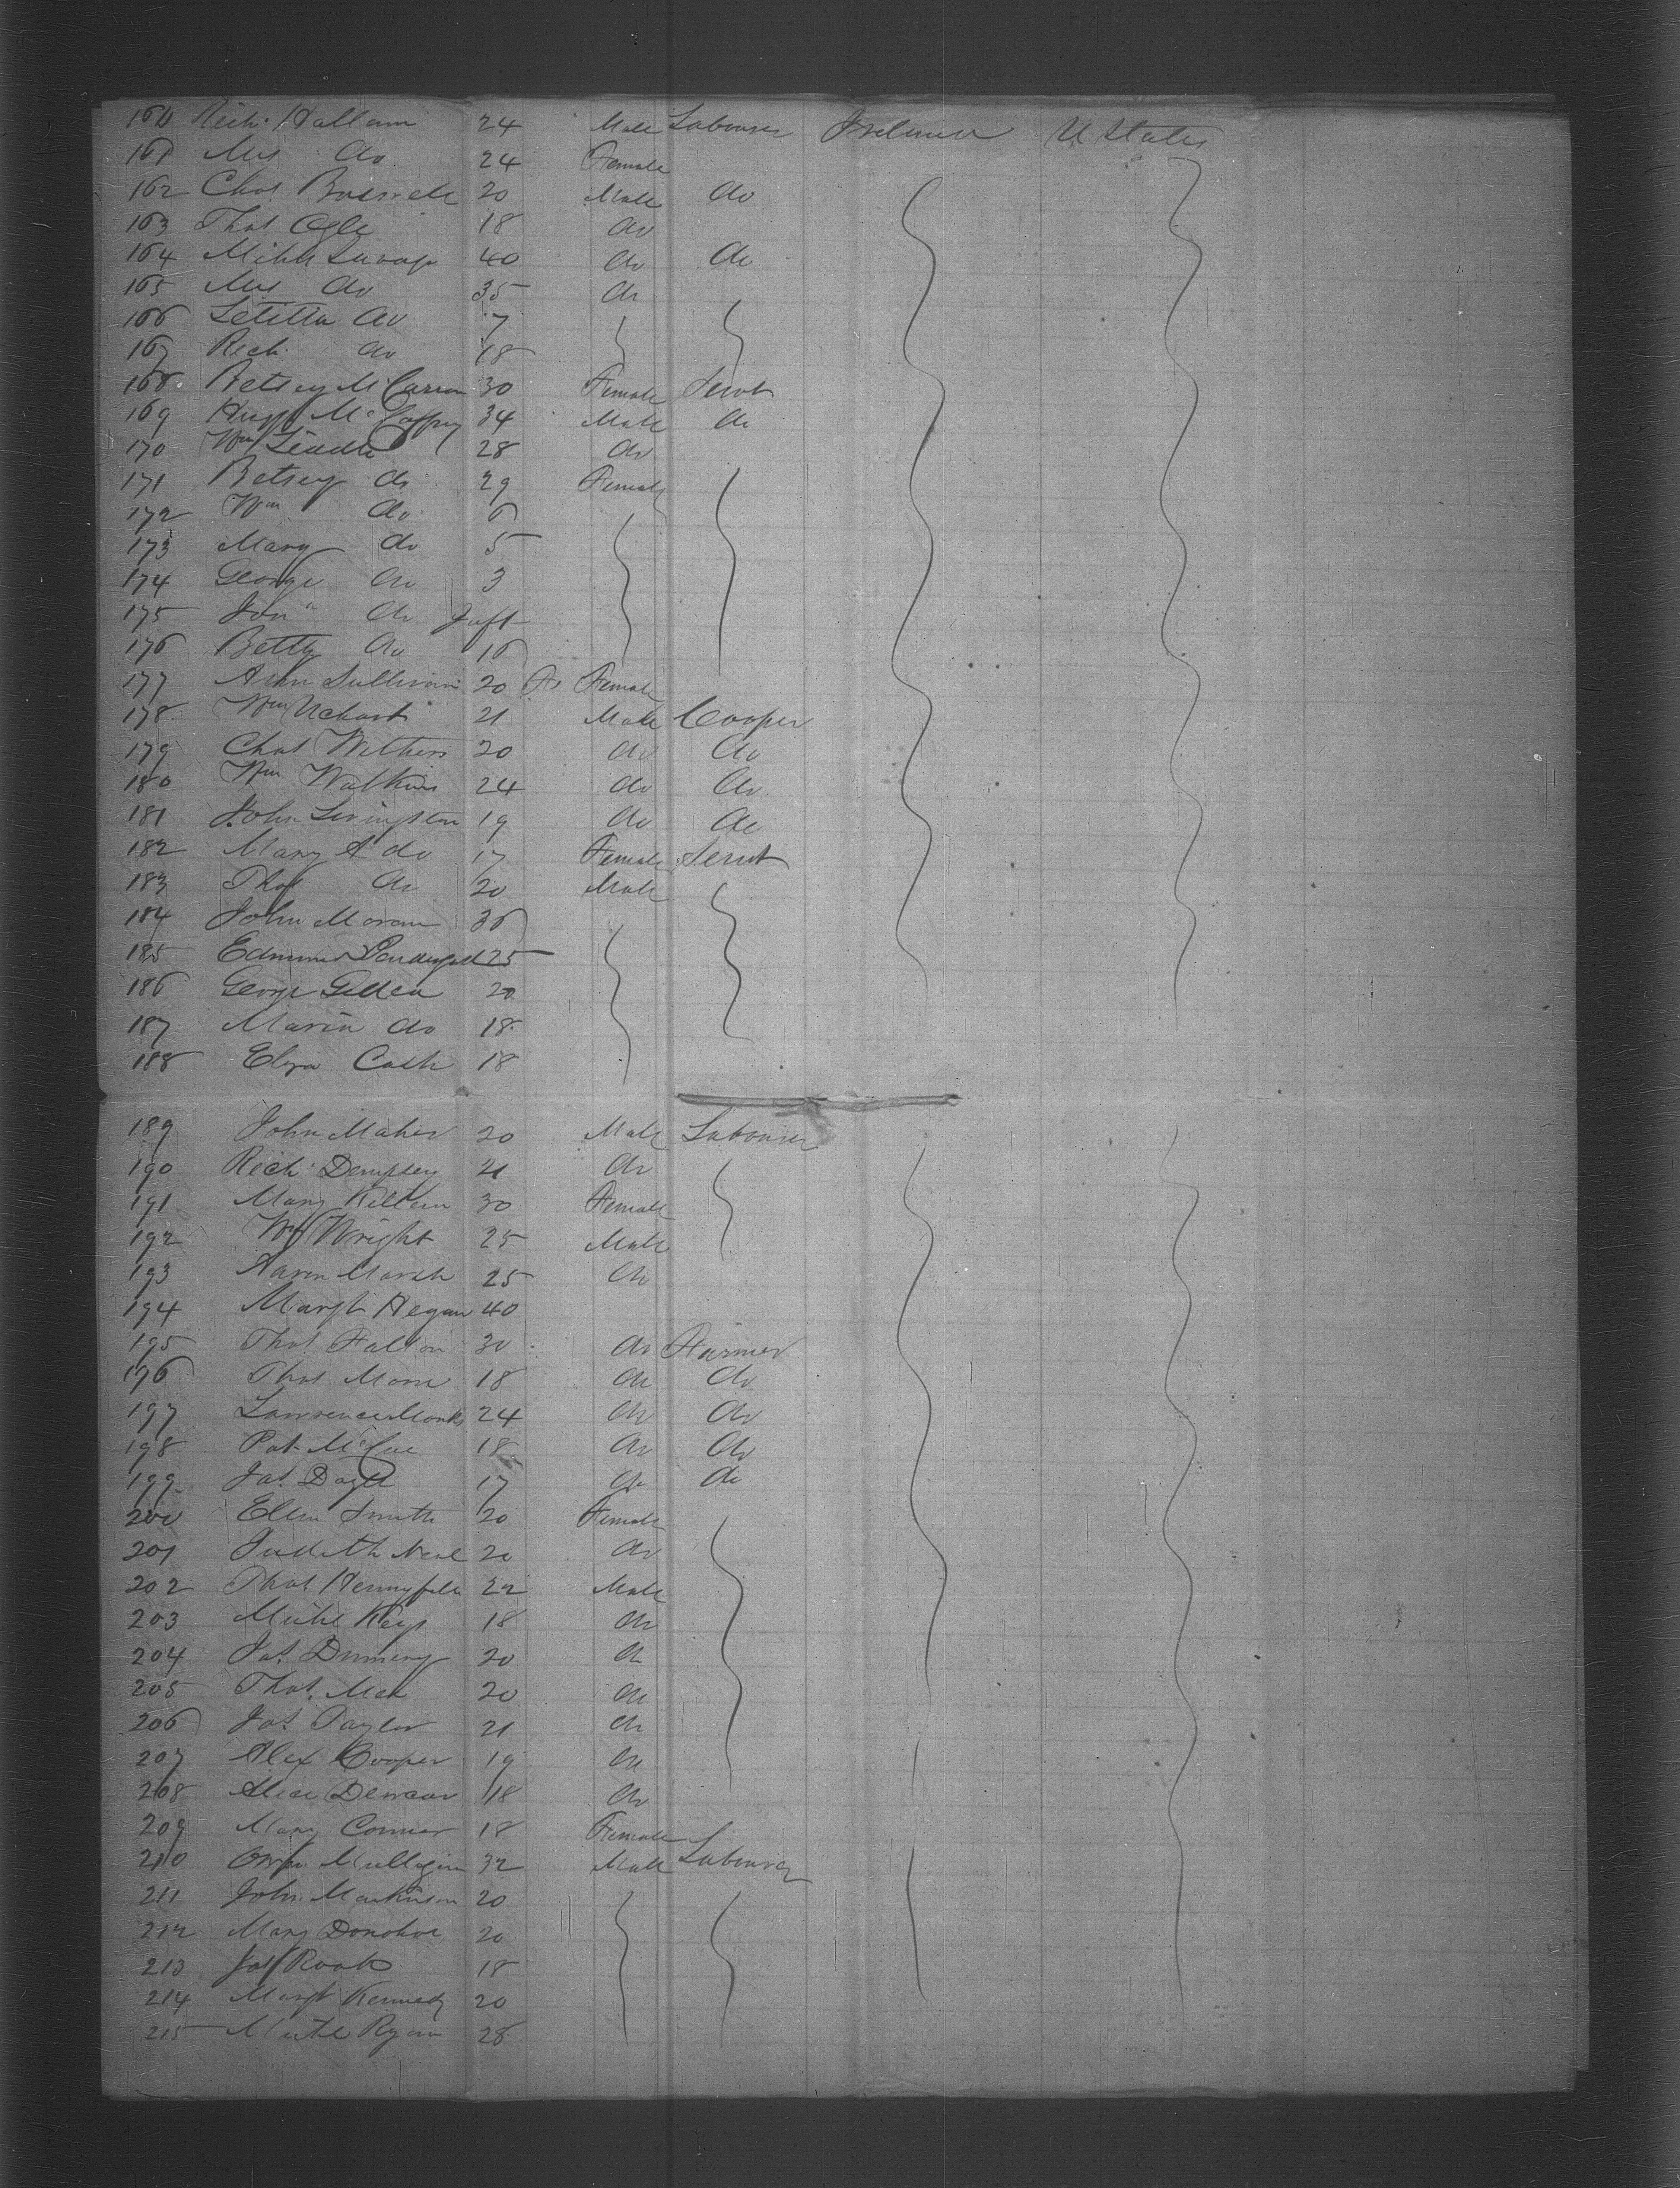 160 Rich. Hallam 24 Male Labourer Ireland U. States
161 Mrs do 24 Female
162 Chas 20 Male do
163 Thos Ogle 18 do
164 Michl Savage 40 do do
165 Mrs do 35 do
166 Letitia do 7
167 Rich. do 18
168 Betsey McCarron 30 Female Servt
169 Hugh McGaffrey 34 Male do
170 Wm 28 do
171 Betsey do 29 Female
172 Wm do 6
173 Mary do 5
174 George do 3
175 Jon do Inft
176 Betty do 16
177 Ann Sullivan 20 Female
178 Wm 21 Male Cooper
179 Chas Withers 20 do do
180 Wm Watkins 24 do do
181 John Livingston 19 do do
182 Mary A do 17 Female Servt
183 Thos do 20 Male
184 John Moran 36
185 Edmund 25
186 George 20
187 Maria do 18
188 Eliza Cash 18
189 John Maher 20 Male Labourer
190 Rich. Dempsey 21 do
191 Mary 30 Female
192 Wm Wright 25 Male
193 Aaron Marsh 25 do
194 Margt Hegan 40
195 Thos Fallon 30 do Farmer
196 Thos 18 do do
197 Lawrence Monks 24 do do
198 Pat McCue 18 do do
199 Jas 17 do do
200 Ellen Smith 20 Female
201 Judith Neal 20 do
202 Thos 22 Male
203 Michl Keys 18 do
204 Jas 20 do
205 Thos 20 do
206 Jas Taylor 21 do
207 Alex Cooper 19 do
208 18 do
209 Mary Connor 18 Female
210 Owen Mulligan 32 Male Labourer
211 John 20
212 Mary Donohoe 20
213 Jas 18
214 Margt Kennedy 20
215 Michl Ryan 28